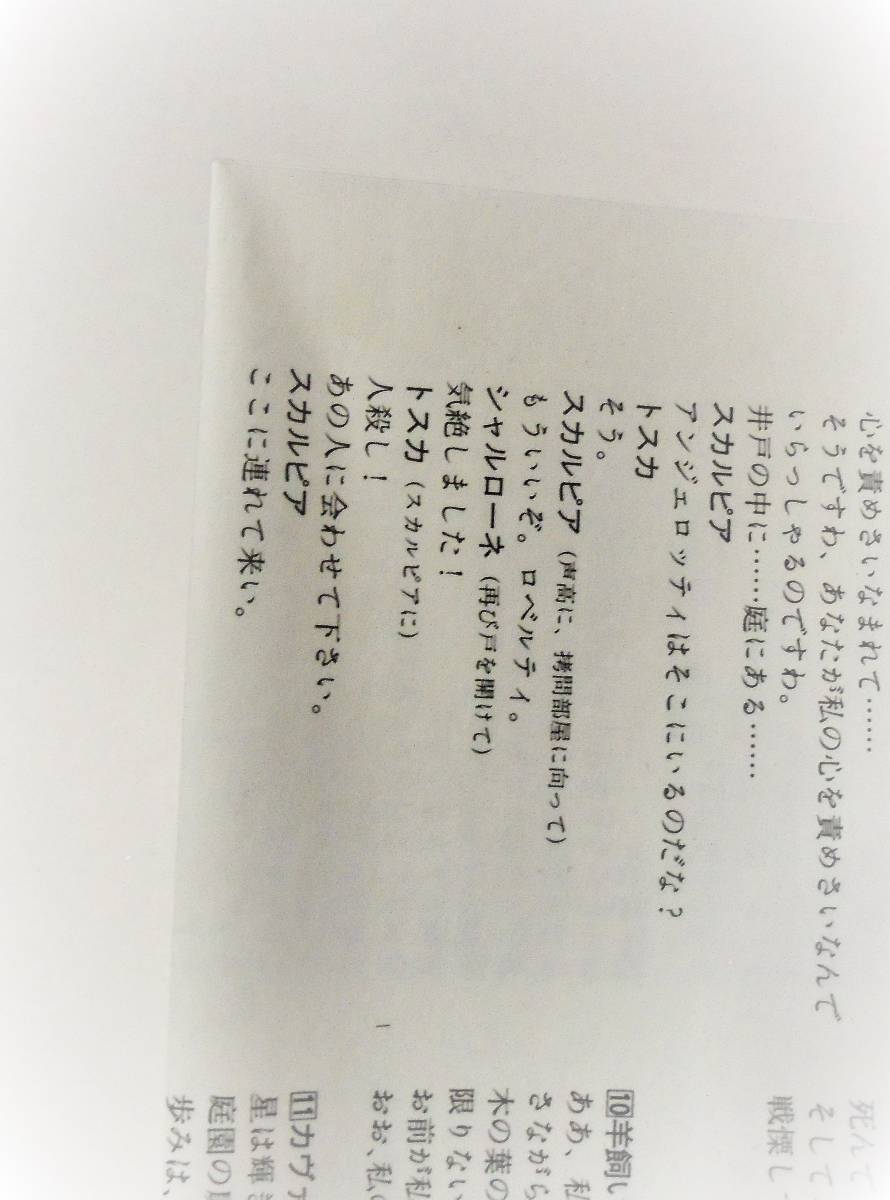 心を責めさいなまれて……
そうですわ、あなたが私の心を責めさいなんで
いらっしゃるのですわ。
井戸の中に……庭にある……
スカルピア
アンジェロッティはそこにいるのだな？
トスカ
そう。
スカルピア（声高に、拷問部屋に向って）
もういいぞ。ロベルティ。
シャルローネ（再び戸を開けて）
気絶しました！
トスカ（スカルピアに）
人殺し！
あの人に会わせて下さい。
スカルピア
ここに連れて来い。
死んで
そして
戦慄し
10羊飼い
ああ、私
さながら
木の葉の
限りない
お前が私
おお、私の
11カヴァ
星は輝き
庭園の
歩みは、